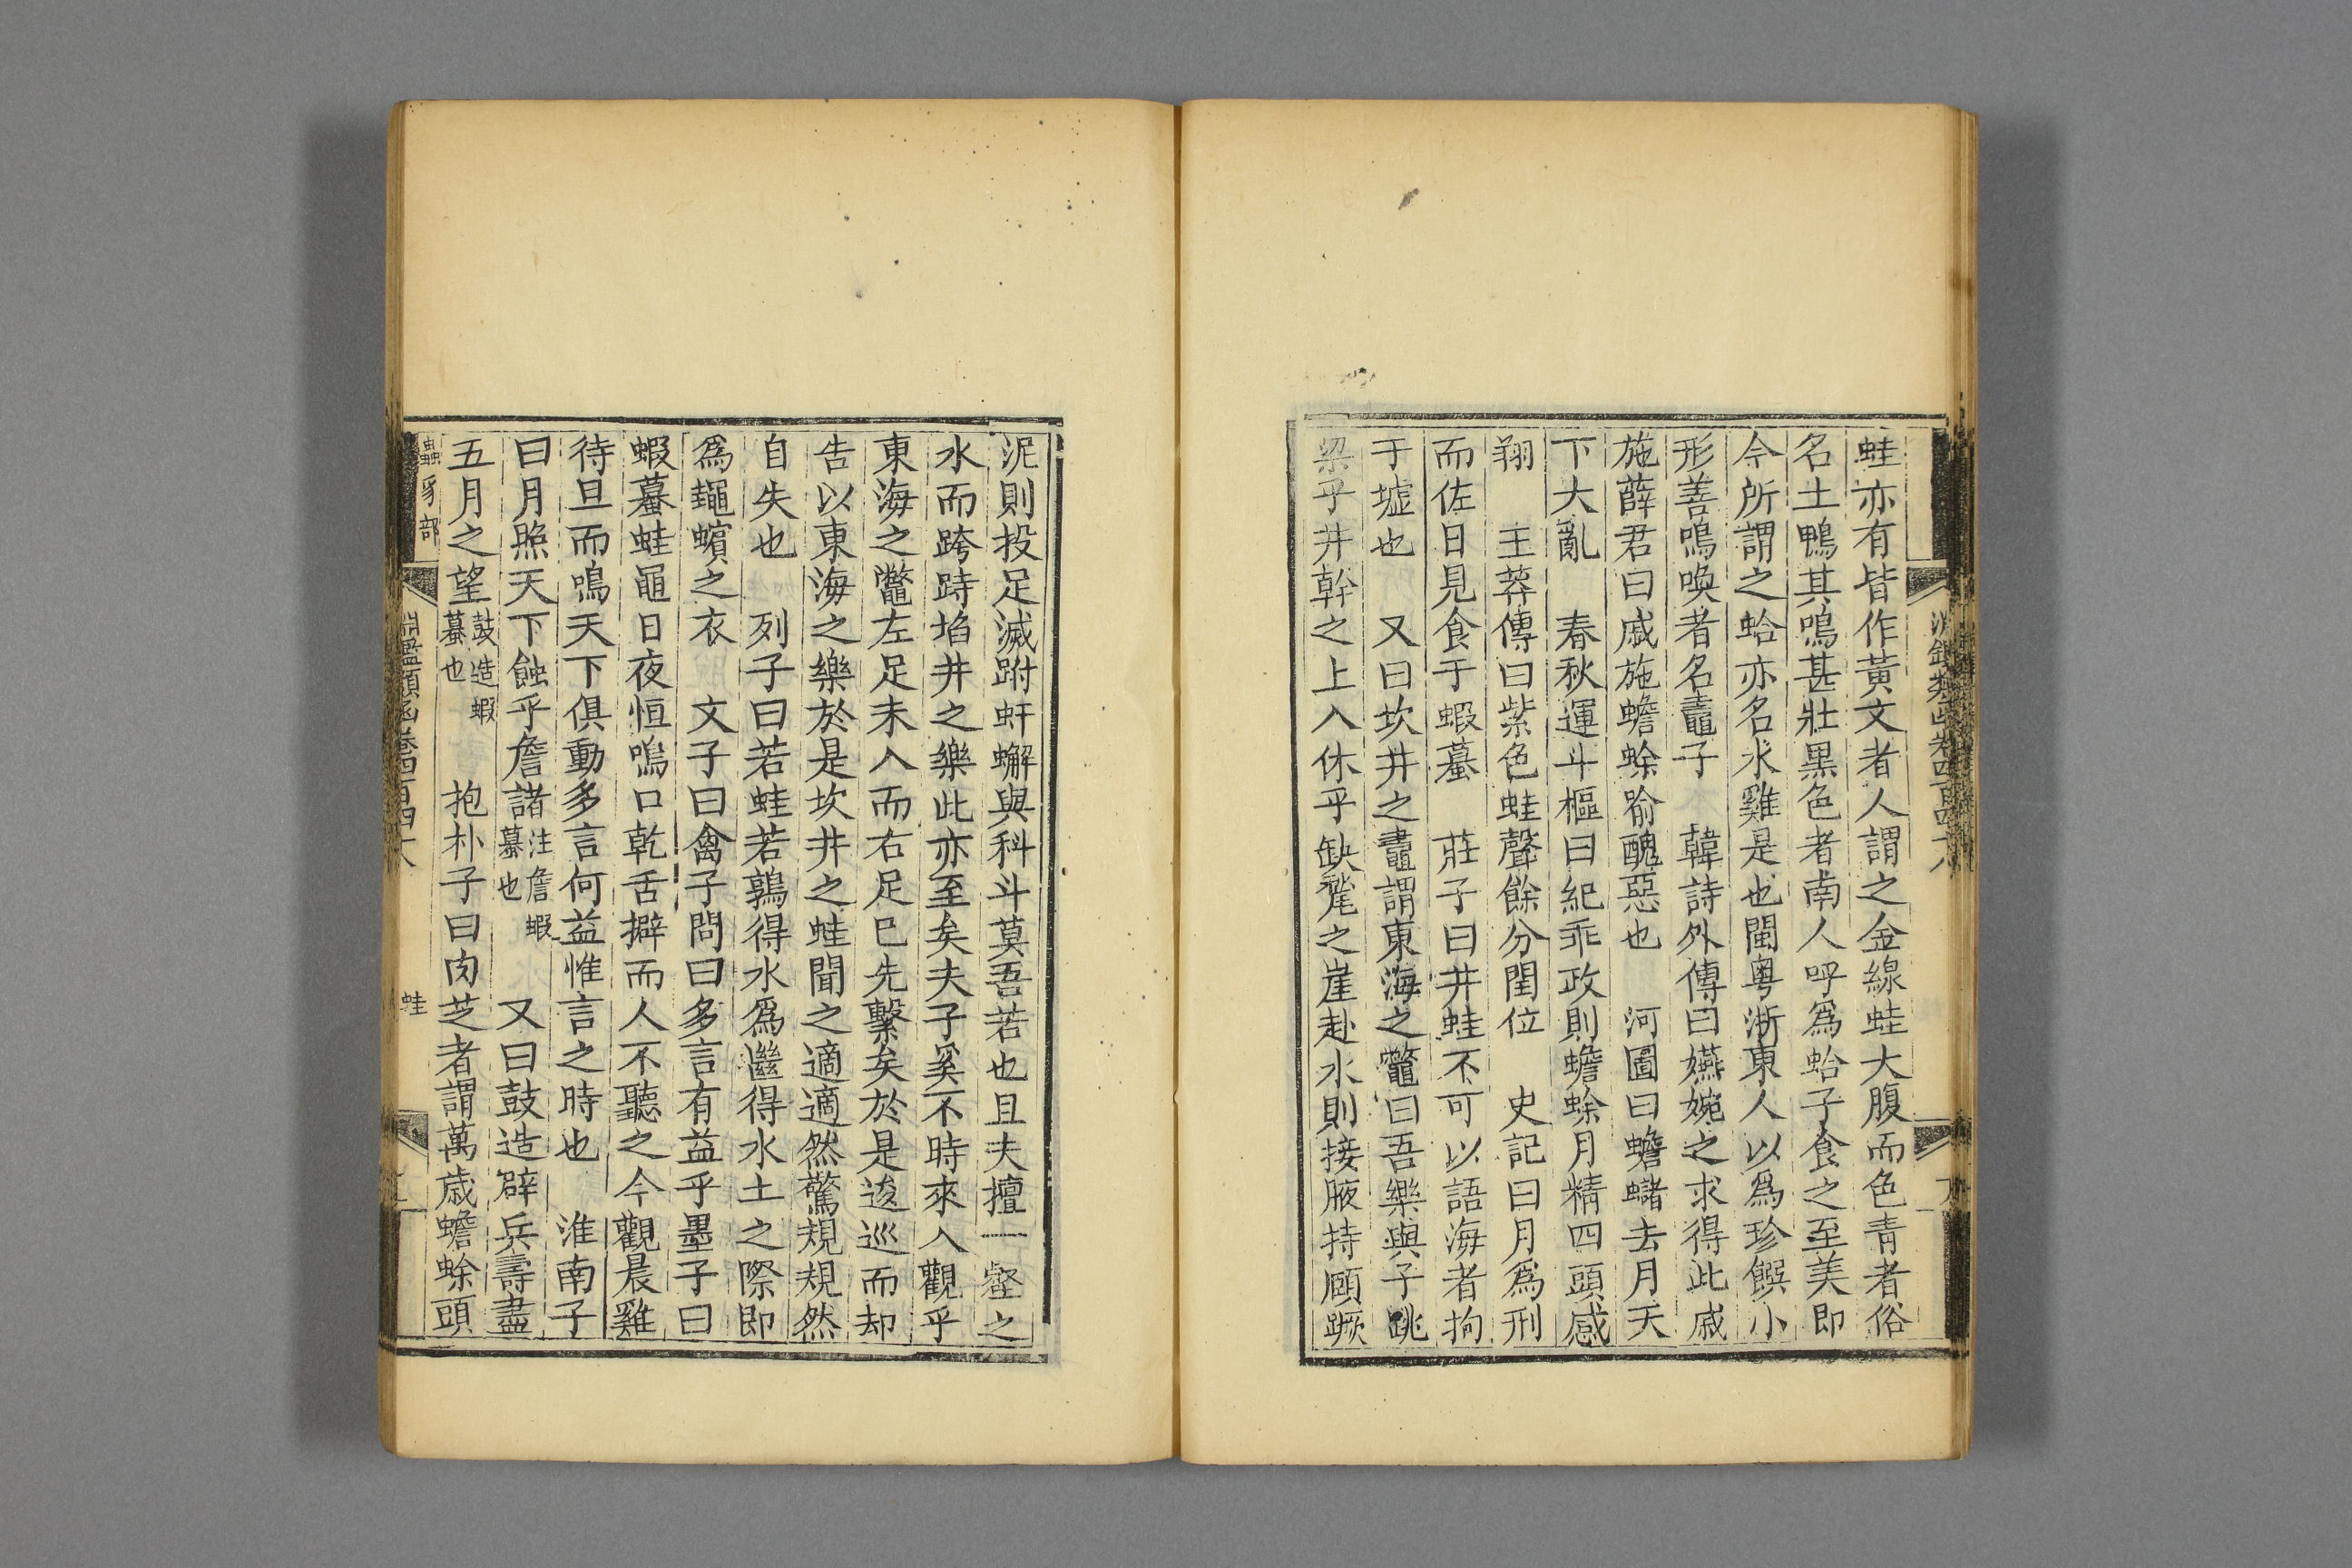 蛙亦有皆作黃文者人謂之金線蛙大腹而色青者俗
名土鴨其鳴甚壯黑色者南人呼爲蛤子食之至美即
今所謂之蛤亦名水雞是也閩粵浙東人以爲珍饌小
形善鳴喚者名鼃子 韓詩外傳曰嬿婉之求得此戚
施薛君曰戚施蟾蜍喻醜惡也 河圖曰蟾蠩去月天
下大亂 春秋運斗樞曰紀乖政則蟾蜍月精四頭感
翔 王莽傳曰紫色蛙聲餘分閏位 史記曰月爲刑
而佐日見食于蝦蟇 莊子曰井蛙不可以語海者拘
于墟也 又曰坎井之鼃謂東海之鼈曰吾樂與子跳
梁乎井幹之上入休乎缺甃之崖赴水則接腋持頤蹶
泥則投足滅跗虷蠏與科斗莫吾若也且夫擅一壑之
水而跨跱埳井之樂此亦至矣夫子奚不時來入觀乎
東海之鼈左足未入而右足巳先繫矣於是逡巡而却
告以東海之樂於是坎井之蛙聞之適適然驚規規然
自失也 列子曰若蛙若鶉得水爲㡭得水土之際即
爲鼃蠙之衣 文子曰禽子問曰多言有益乎墨子曰
蝦蟇蛙黽日夜恒鳴口乾舌擗而人不聽之今觀晨雞
待旦而鳴天下俱動多言何益惟言之時也 淮南子
曰月照天下蝕乎詹諸注詹蝦蟇也 又曰鼓造辟兵壽盡
五月之望鼓造蝦蟇也 抱朴子曰肉芝者謂萬歲蟾蜍頭
蟲豸部
淵鑑類函卷四百四十八
蛙